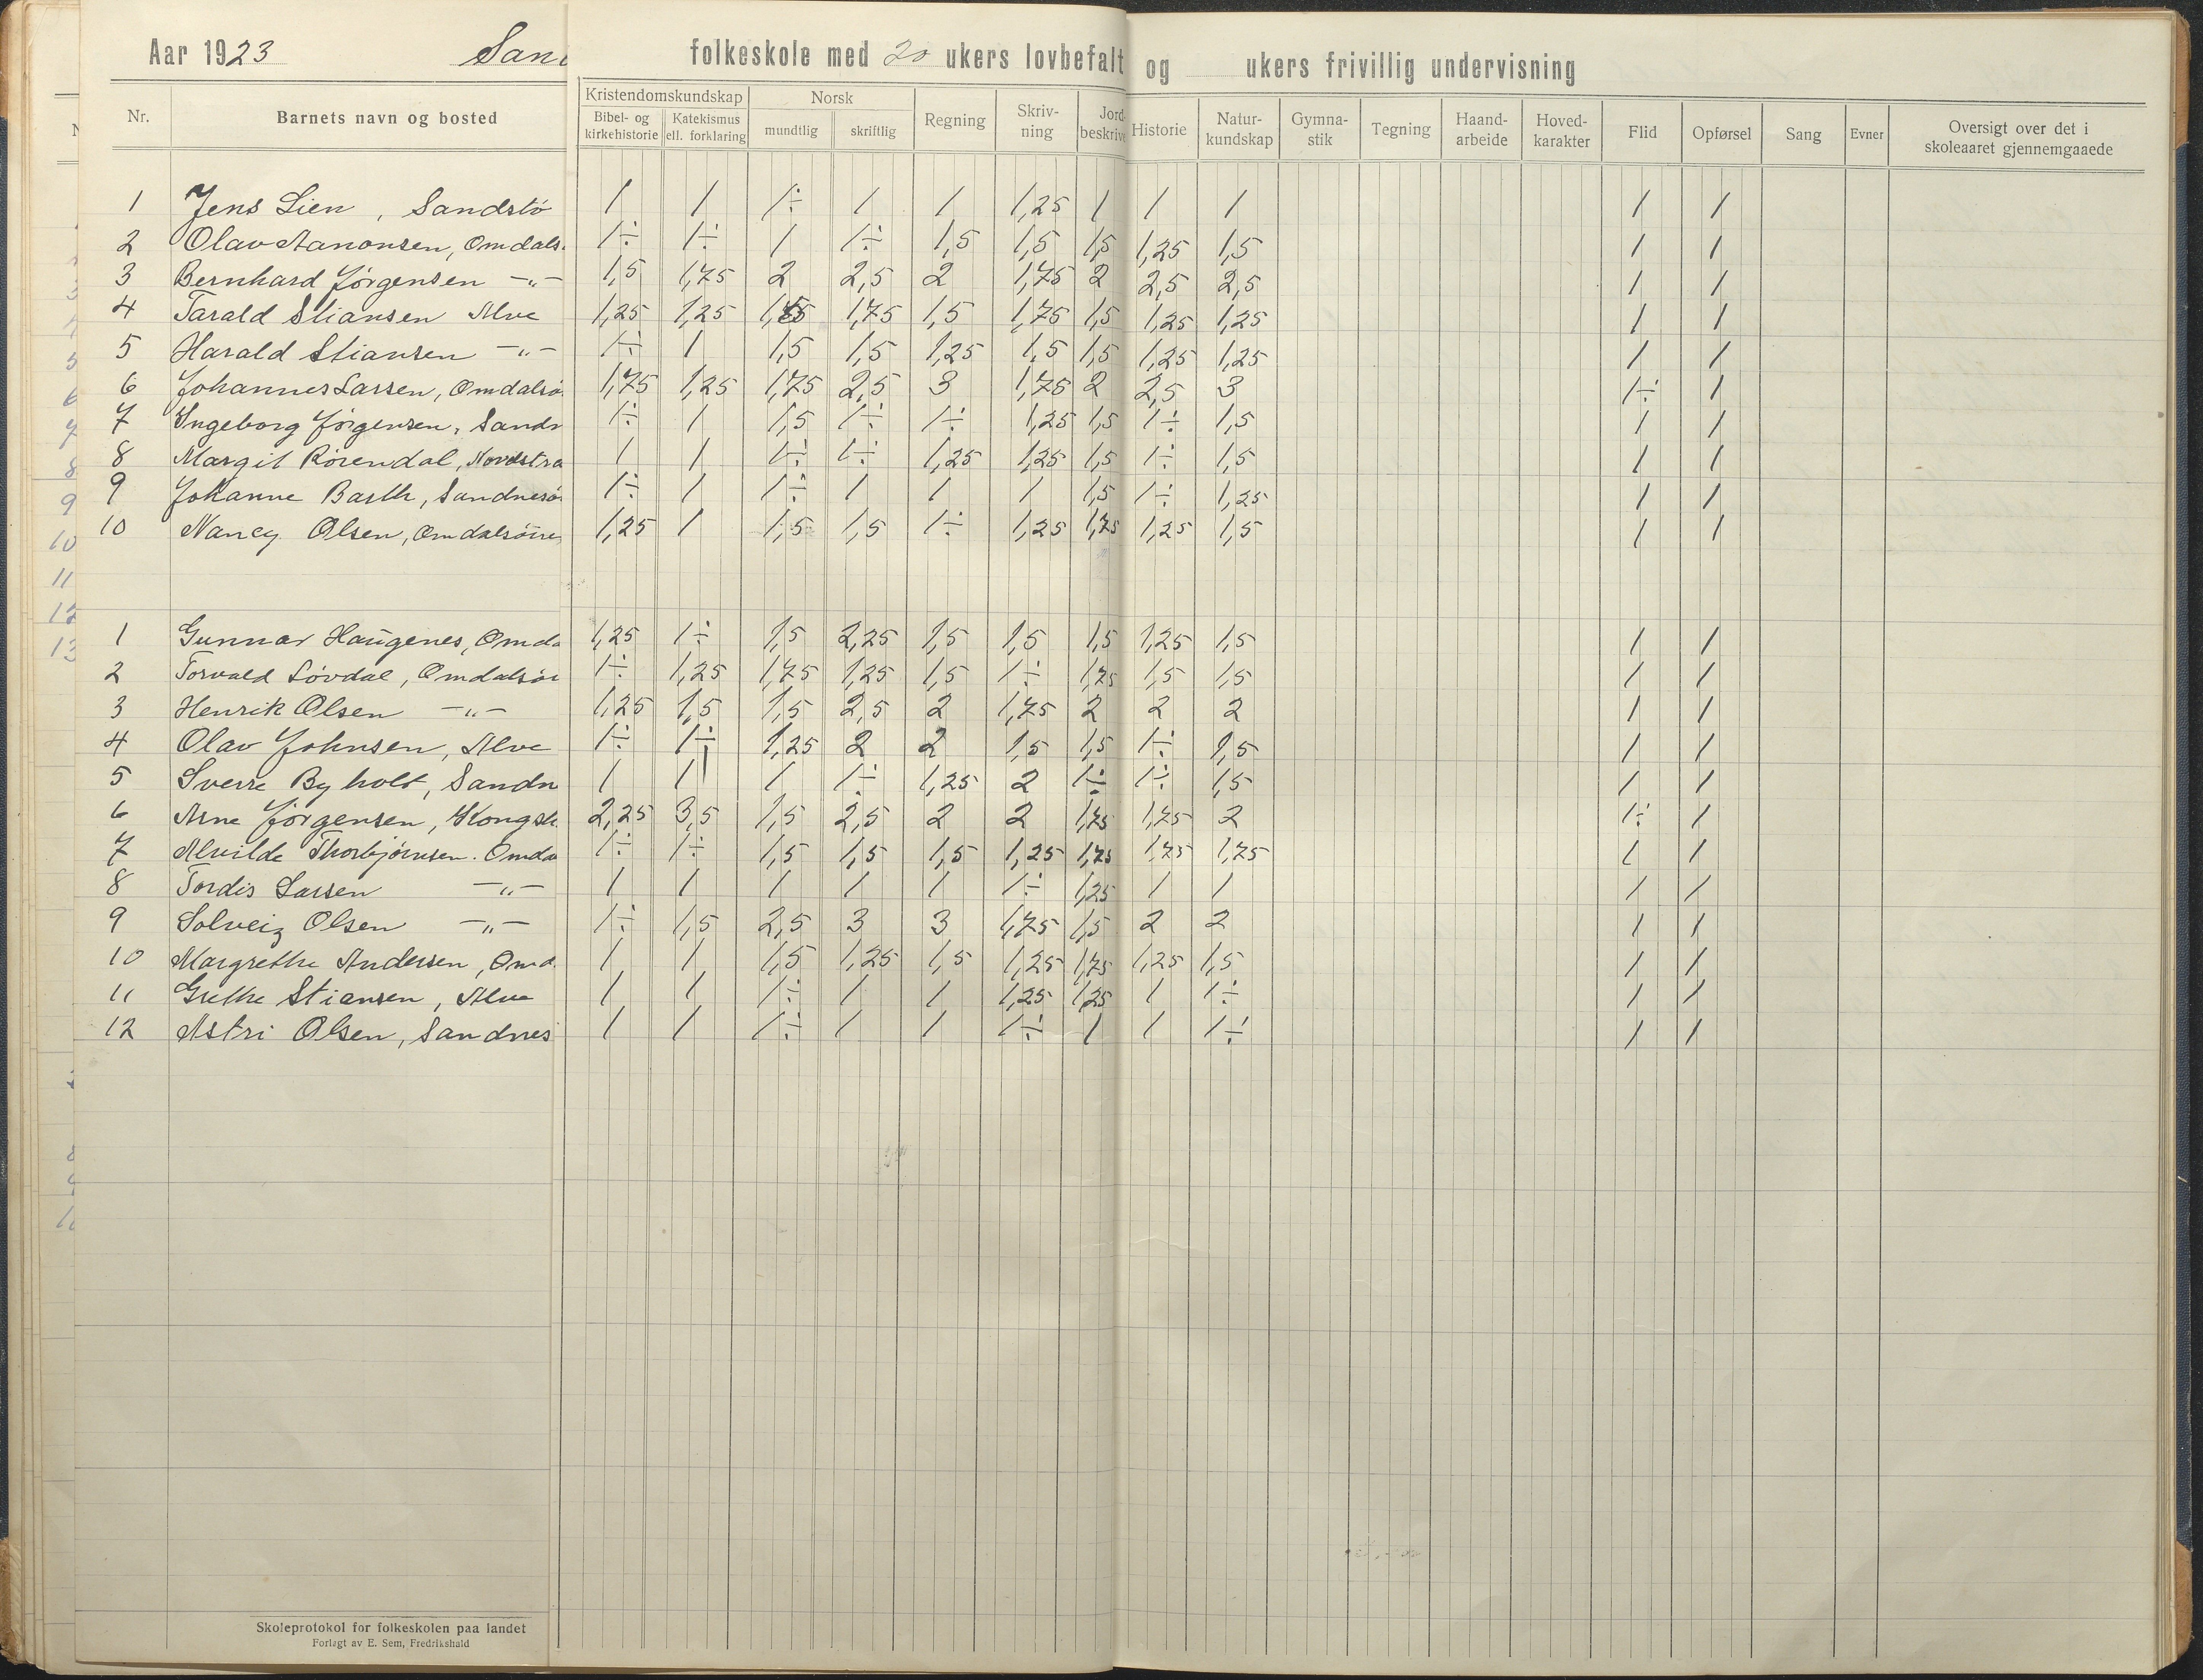 Aar 1923 San folkeskole med 20 ukers lovbefalt og ukers frivillig undervisning
Nr. Barnets navn og bosted Kristendomskundskap Norsk Regning Skriv-ning Jord-beskriv Historie Natur-kundskap Gymna-stik Tegning Haand-arbeide Hoved-karakter Flid Opførsel Sang Evner Oversigt over det i skoleaaret gjennemgaaede
Bibel- og kirkehistorie Katekismus ell. forklaring mundtlig skriftlig
1 Jens Lien, Sandstö 1 1 1÷ 1 1 1,25 1 1 1 1 1
2 Olav Aanonsen, Omdals 1÷ 1÷ 1 1÷ 1,5 1,5 1,5 1,25 1,5 1 1
3 Bernhard Jörgensen -"- 1,5 1,75 2 2,5 2 1,75 2 2,5 2,5 1 1
4 Tarald Stiansen Alve 1,25 1,25 1,75 1,5 1,75 1,5 1,25 1,25 1 1
5 Harald Stiansen -"- 1÷ 1 1,5 1,5 1,25 1,5 1,5 1,25 1,25 1 1
6 Johannes Larsen, Omdalsö 1,75 1,25 1,75 2,5 3 1,75 2 2,5 3 1÷ 1
7 Ingeborg Jörgensen, Sandn 1÷ 1 1,5 1÷ 1÷ 1,25 1,5 1÷ 1,5 1 1
8 Margit Rörendal, Nordstra 1 1 1÷ 1÷ 1,25 1,25 1,5 1÷ 1,5 1 1
9 Johanne Barth, Sandnesö 1÷ 1 1÷ 1 1 1 1,5 1÷ 1,25 1 1
10 Nancy Olsen, Omdalsöire 1,25 1 1,5 1,5 1÷ 1,25 1,75 1,25 1,5 1 1
1 Gunnar Haugenes, Omda 1,25 1÷ 1,5 2,25 1,5 1,5 1,5 1,25 1,5 1 1
2 Torvald Lövdal, Omdalsöi 1÷ 1,25 1,75 1,25 1,5 1÷ 1,75 1,5 1,5 1 1
3 Henrik Olsen -"- 1,25 1,5 1,5 2,5 2 1,75 2 2 2 1 1
4 Olav Johnsen, Alve 1÷ 1÷ 1,25 2 2 1,5 1,5 1÷ 1,5 1 1
5 Sverre Byholt, Sandn 1 1 1 1÷ 1,25 2 1÷ 1÷ 1,5 1 1
6 Arne Jörgensen, Kongsh 2,25 3,5 1,5 2,5 2 2 1,75 1,75 2 1÷ 1
7 Alvilde Thorbjörnsen. Omda 1÷ 1÷ 1,5 1,5 1,5 1,25 1,75 1,75 1,75 1 1
8 Tordis Larsen -"- 1 1 1 1 1 1÷ 1,25 1 1 1 1
9 Solveig Olsen -"- 1÷ 1,5 2,5 3 3 1,75 1,5 2 2 1 1
10 Margrethe Andersen, Omd. 1 1 1,5 1,25 1,5 1,25 1,75 1,25 1,5 1 1
11 Grethe Stiansen, Alve 1 1 1÷ 1 1 1,25 1,25 1 1÷ 1 1
12 Astri Olsen, Sandnes 1 1 1÷ 1 1 1÷ 1 1 1÷ 1 1
Skoleprotokol for folkeskolen paa landet
Forlagt av E. Sem, Fredrikshald